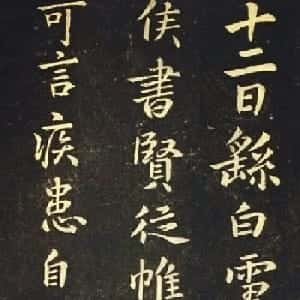 十二日繇白雪
侯書賢從帷
可言疾患自